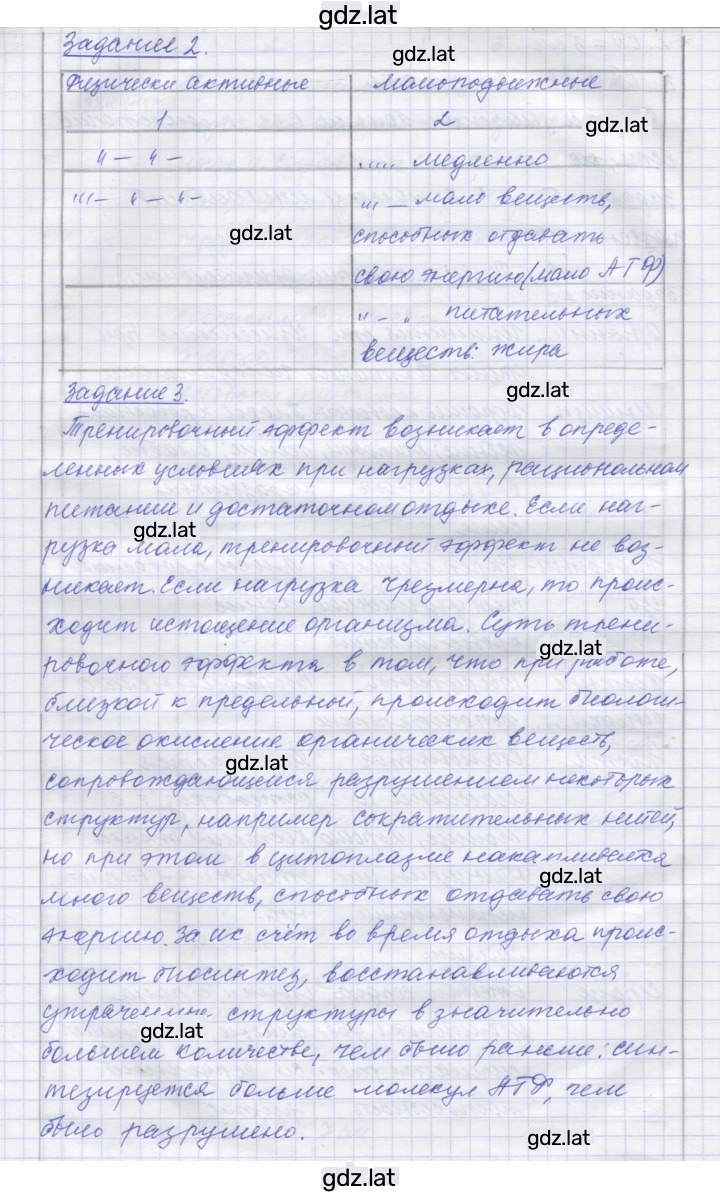 gdz.lat
Задание 2.
gdz.lat
Физически активные Малоподвижные
1 2
gdz.lat
"— "— ,,,,, медленно
"'— "— "— ,,, — мало веществ,
gdz.lat
способных отдавать
свою энергию (мало АТФ)
" — " питательных
веществ: жира
Задание 3.
gdz.lat
Тренировочный эффект возникает в опреде-
ленных условиях при нагрузках, рациональном
питании и достаточном отдыхе. Если наг-
gdz.lat
рузка мала, тренировочный эффект не воз-
никает. Если нагрузка чрезмерна, то проис-
ходит истощение организма. Суть трени-
gdz.lat
ровочного эффекта в том, что при работе,
близкой к предельной, происходит биологи-
ческое окисление органических веществ,
gdz.lat
сопровождающееся разрушением некоторых
структур, например сократительных нитей,
но при этом в цитоплазме накапливается
gdz.lat
много веществ, способных отдавать свою
энергию. За их счёт во время отдыха проис-
ходит биосинтез, восстанавливаются
утраченные структуры в значительно
gdz.lat
большем количестве, чем было раньше: син-
тезируется больше молекул АТФ, чем
было разрушено.
gdz.lat
gdz.lat